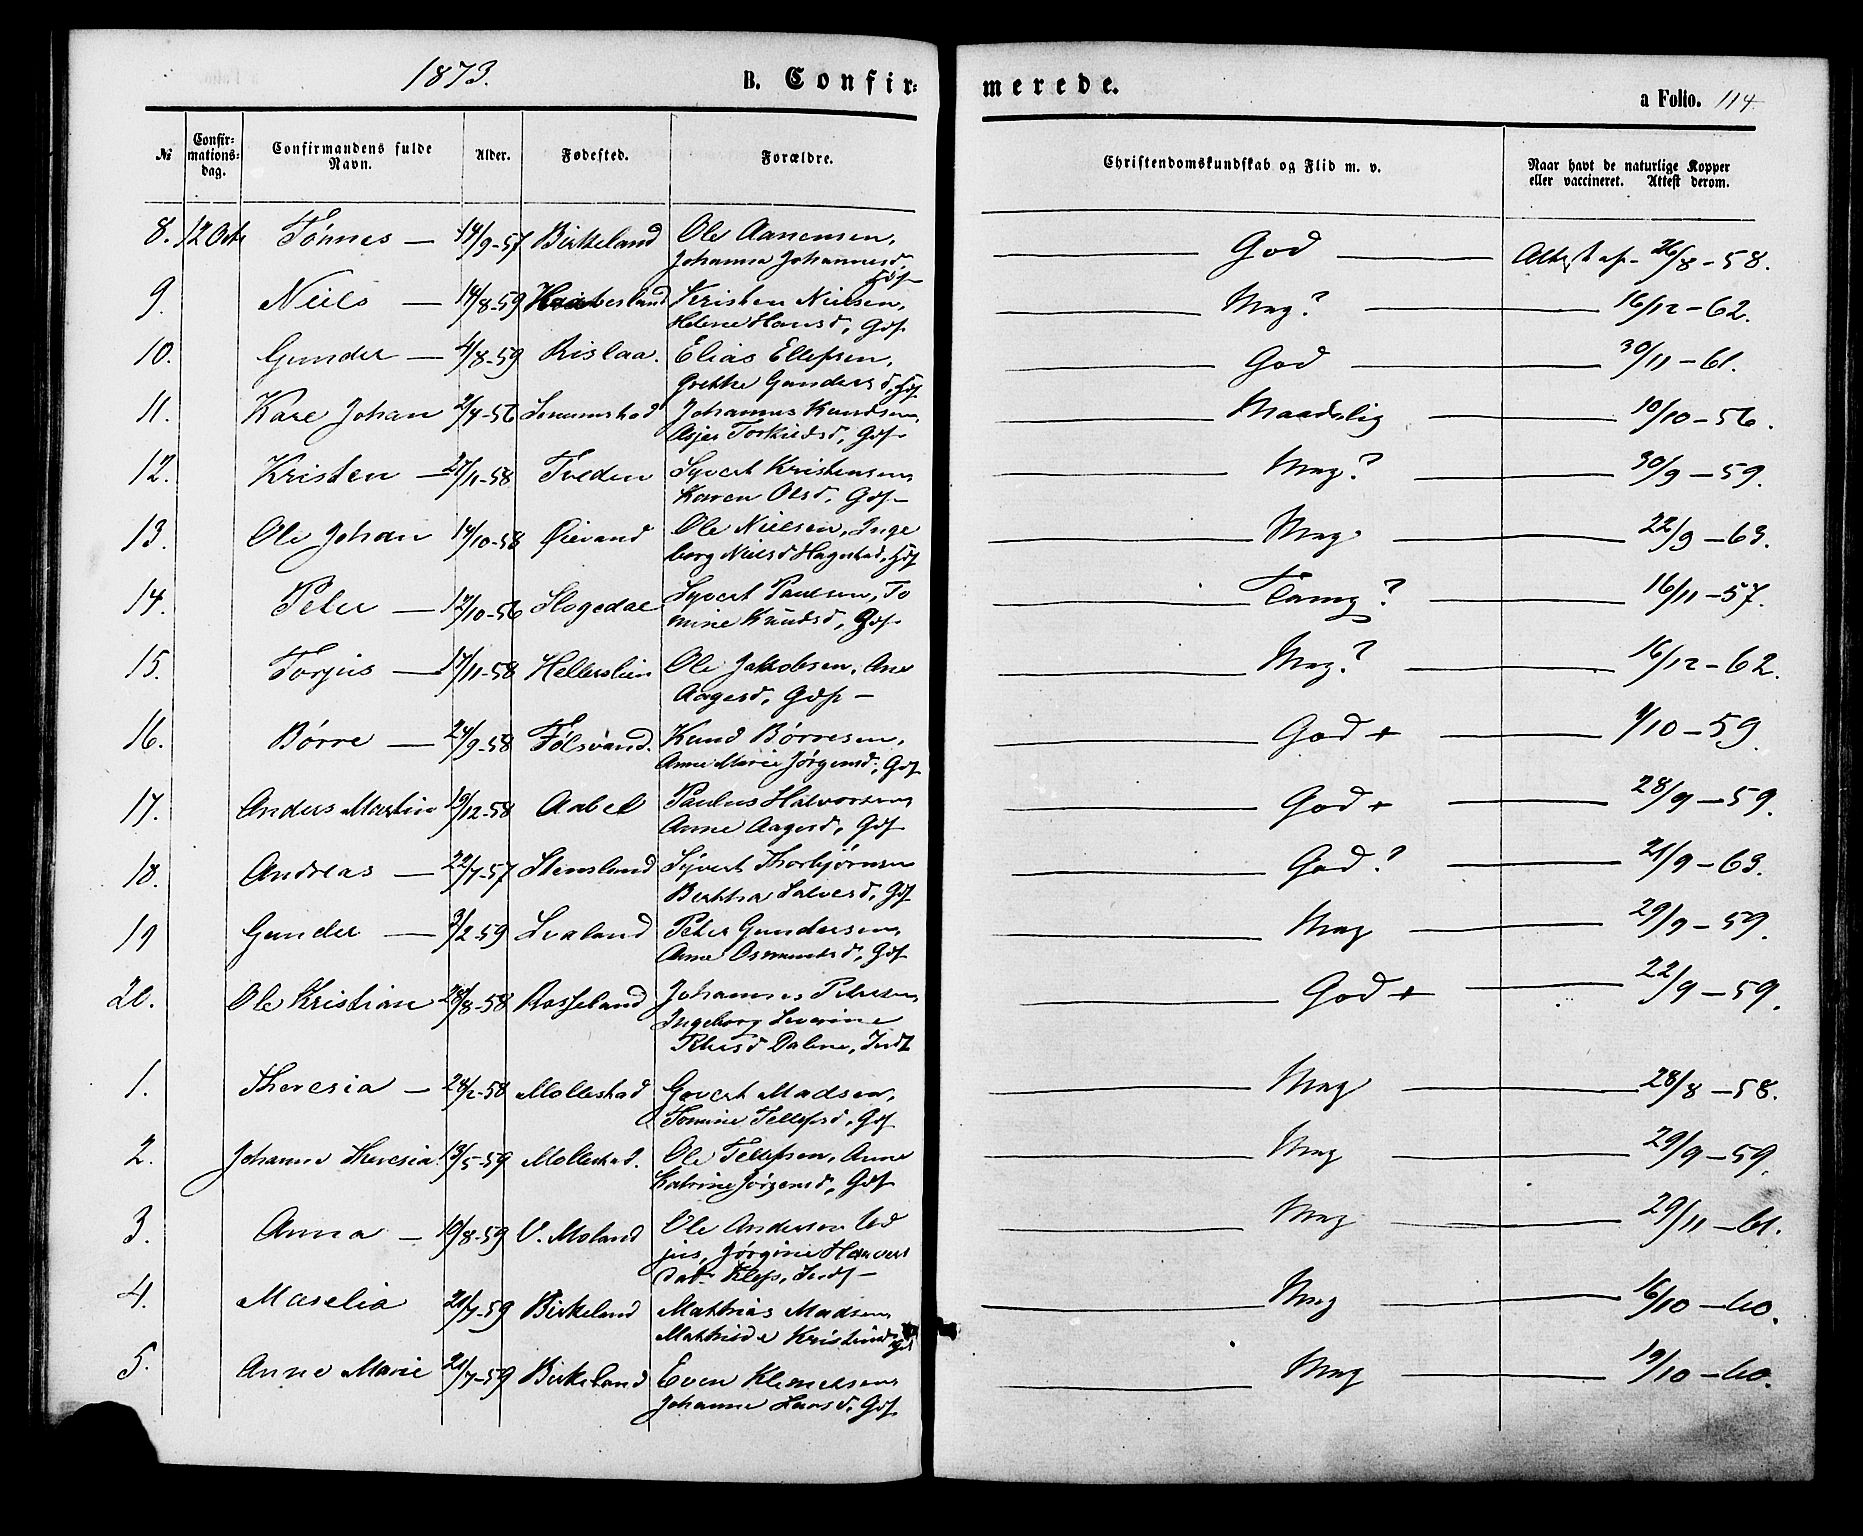 1873. B. Confir- merede. a Folio. 114
№ Confir-mations-dag. Confirmandens fulde Navn. Alder. Fødested. Forældre. Christendomskundskab og Flid m. v. Naar havt de naturlige Kopper eller vaccineret. Attest derom.
8. 12 Octr Tönnes — 14/9-57 Birkeland Ole Aanensen, God Attest af 26/8-58.
Johanna Johannesd,
Gdf
9. Niels — 14/8-59 Kristen Nielsen, Mag? 16/12-62.
Helene Hansd, Gdf
10. Gunder — 4/8-59 Rislaa. Elias Ellefsen, God 30/11-61.
Grethe Gundersd, Gdf
11. Kare Johan 2/4-56 Johannes Knudsen, Maadelig 10/10-56.
Torkildsd, Gdf
12. Kristen — 27/11-58 Tveden Syvert Kristensen, Mag? 30/9-59.
Karen Olsd, Gdf
13. Ole Johan 14/10-58 Øievand Ole Nielsen, Inge Mag 22/9-63.
borg Nielsd Hagestad, Gdf
14. Peter — 17/10-56 Skogedal Syvert Paulsen, To Tarvg? 16/11-57.
mine Knudsd, Gdf
15. Torjus — 17/11-58 Hellerslien Ole Jakobsen, Ane Mag? 16/12-62.
Aagesd, Gdf —
16. Börre — 24/9-58 Følsvand. Knud Börresen, God + 9/10-59.
Anne Marie Jörgensd, Gdf
17. Anders Martin 19/12-58 Aabel Paulus Halvorsen, God + 28/9-59.
Anne Aagesd, Gdf
18. Andreas — 22/7-57 Stensland Syvert Thorbjörnsen God? 21/9-63.
Bertha Salvesd, Gdf
19 Gunder — 3/2-59 Lvaland Peter Gundersen, Mag 29/9-59.
Anne Osmundsd, Gdf
20. Ole Kristian 28/8-58 Rosseland Johannes Petersen, God + 22/9-59.
Ingeborg Severine
Dalene, Indst
1. Theresia — 28/2-58 Mollestad Govert Madsen, Mag 28/8-58.
Tomine Tellefsd, Gdf
2. Johanne Theresia. 13/5-59 Mollestad. Ole Tellefsen, Anne Mag 29/9-59.
Katrine Jörgensd, Gdf
3. Anna — 10/8-59 V. Moland Ole Andersen Ved Mag 29/11-61.
jus, Jörgine Hanvers
dat. Klep, Indst —
4. Maselia 21/7-59 Birkeland Mathias Madsen, Mag 16/10-60.
Mathilde Kristiansd, Gdf
5. Anne Marie 21/7-59 Birkeland Even Klemetsen, Mag 19/10-60.
Johanne Larsd, Gdf